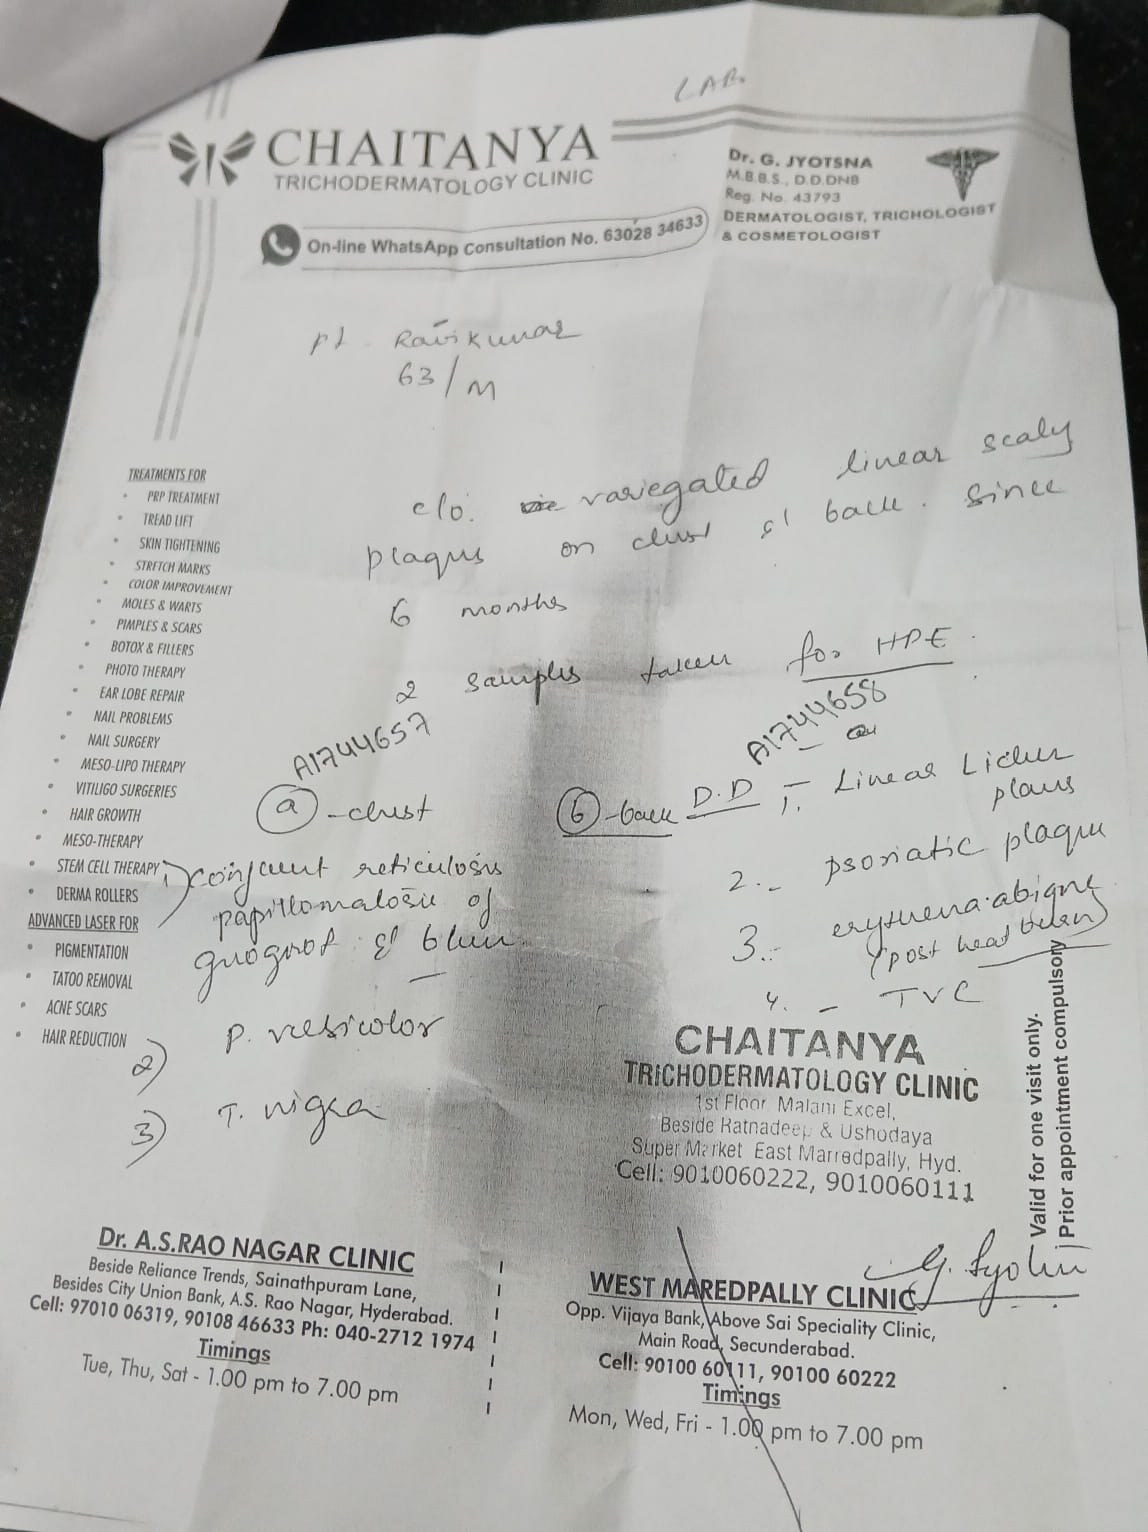 LAB.
CHAITANYA
TRICHODERMATOLOGY CLINIC
On-line WhatsApp Consultation No. 63028 34633
Dr. G. JYOTSNA
M.B.B.S., D.D.DNB
Reg. No. 43793
DERMATOLOGIST, TRICHOLOGIST
& COSMETOLOGIST
Pt. Ravikumar
63/M
c/o. variegated linear scaly
plaques on chest & back. since
6 months
2 samples taken for HPE.
A1744657
A1744658
(a) - chest
(b) - back
D.D - 1. Linear Lichen
planus
2. - psoriatic plaque
3. - erythema abigne
(post heat burn)
4. - TVC
1) confluent reticulosis
papillomatosis of
gougerot & 
2) P. versicolor
3) T. nigra
TREATMENTS FOR
• PRP TREATMENT
• TREAD LIFT
• SKIN TIGHTENING
• STRETCH MARKS
• COLOR IMPROVEMENT
• MOLES & WARTS
• PIMPLES & SCARS
• BOTOX & FILLERS
• PHOTO THERAPY
• EAR LOBE REPAIR
• NAIL PROBLEMS
• NAIL SURGERY
• MESO-LIPO THERAPY
• VITILIGO SURGERIES
• HAIR GROWTH
• MESO-THERAPY
• STEM CELL THERAPY
• DERMA ROLLERS
ADVANCED LASER FOR
• PIGMENTATION
• TATOO REMOVAL
• ACNE SCARS
• HAIR REDUCTION
CHAITANYA
TRICHODERMATOLOGY CLINIC
1st Floor Malani Excel,
Beside Ratnadeep & Ushodaya
Super Market East Marredpally, Hyd.
Cell: 9010060222, 9010060111
Valid for one visit only.
Prior appointment compulsory
G. Jyothi
Dr. A.S.RAO NAGAR CLINIC
Beside Reliance Trends, Sainathpuram Lane,
Besides City Union Bank, A.S. Rao Nagar, Hyderabad.
Cell: 97010 06319, 90108 46633 Ph: 040-2712 1974
Timings
Tue, Thu, Sat - 1.00 pm to 7.00 pm
WEST MAREDPALLY CLINIC
Opp. Vijaya Bank, Above Sai Speciality Clinic,
Main Road, Secunderabad.
Cell: 90100 60111, 90100 60222
Timings
Mon, Wed, Fri - 1.00 pm to 7.00 pm